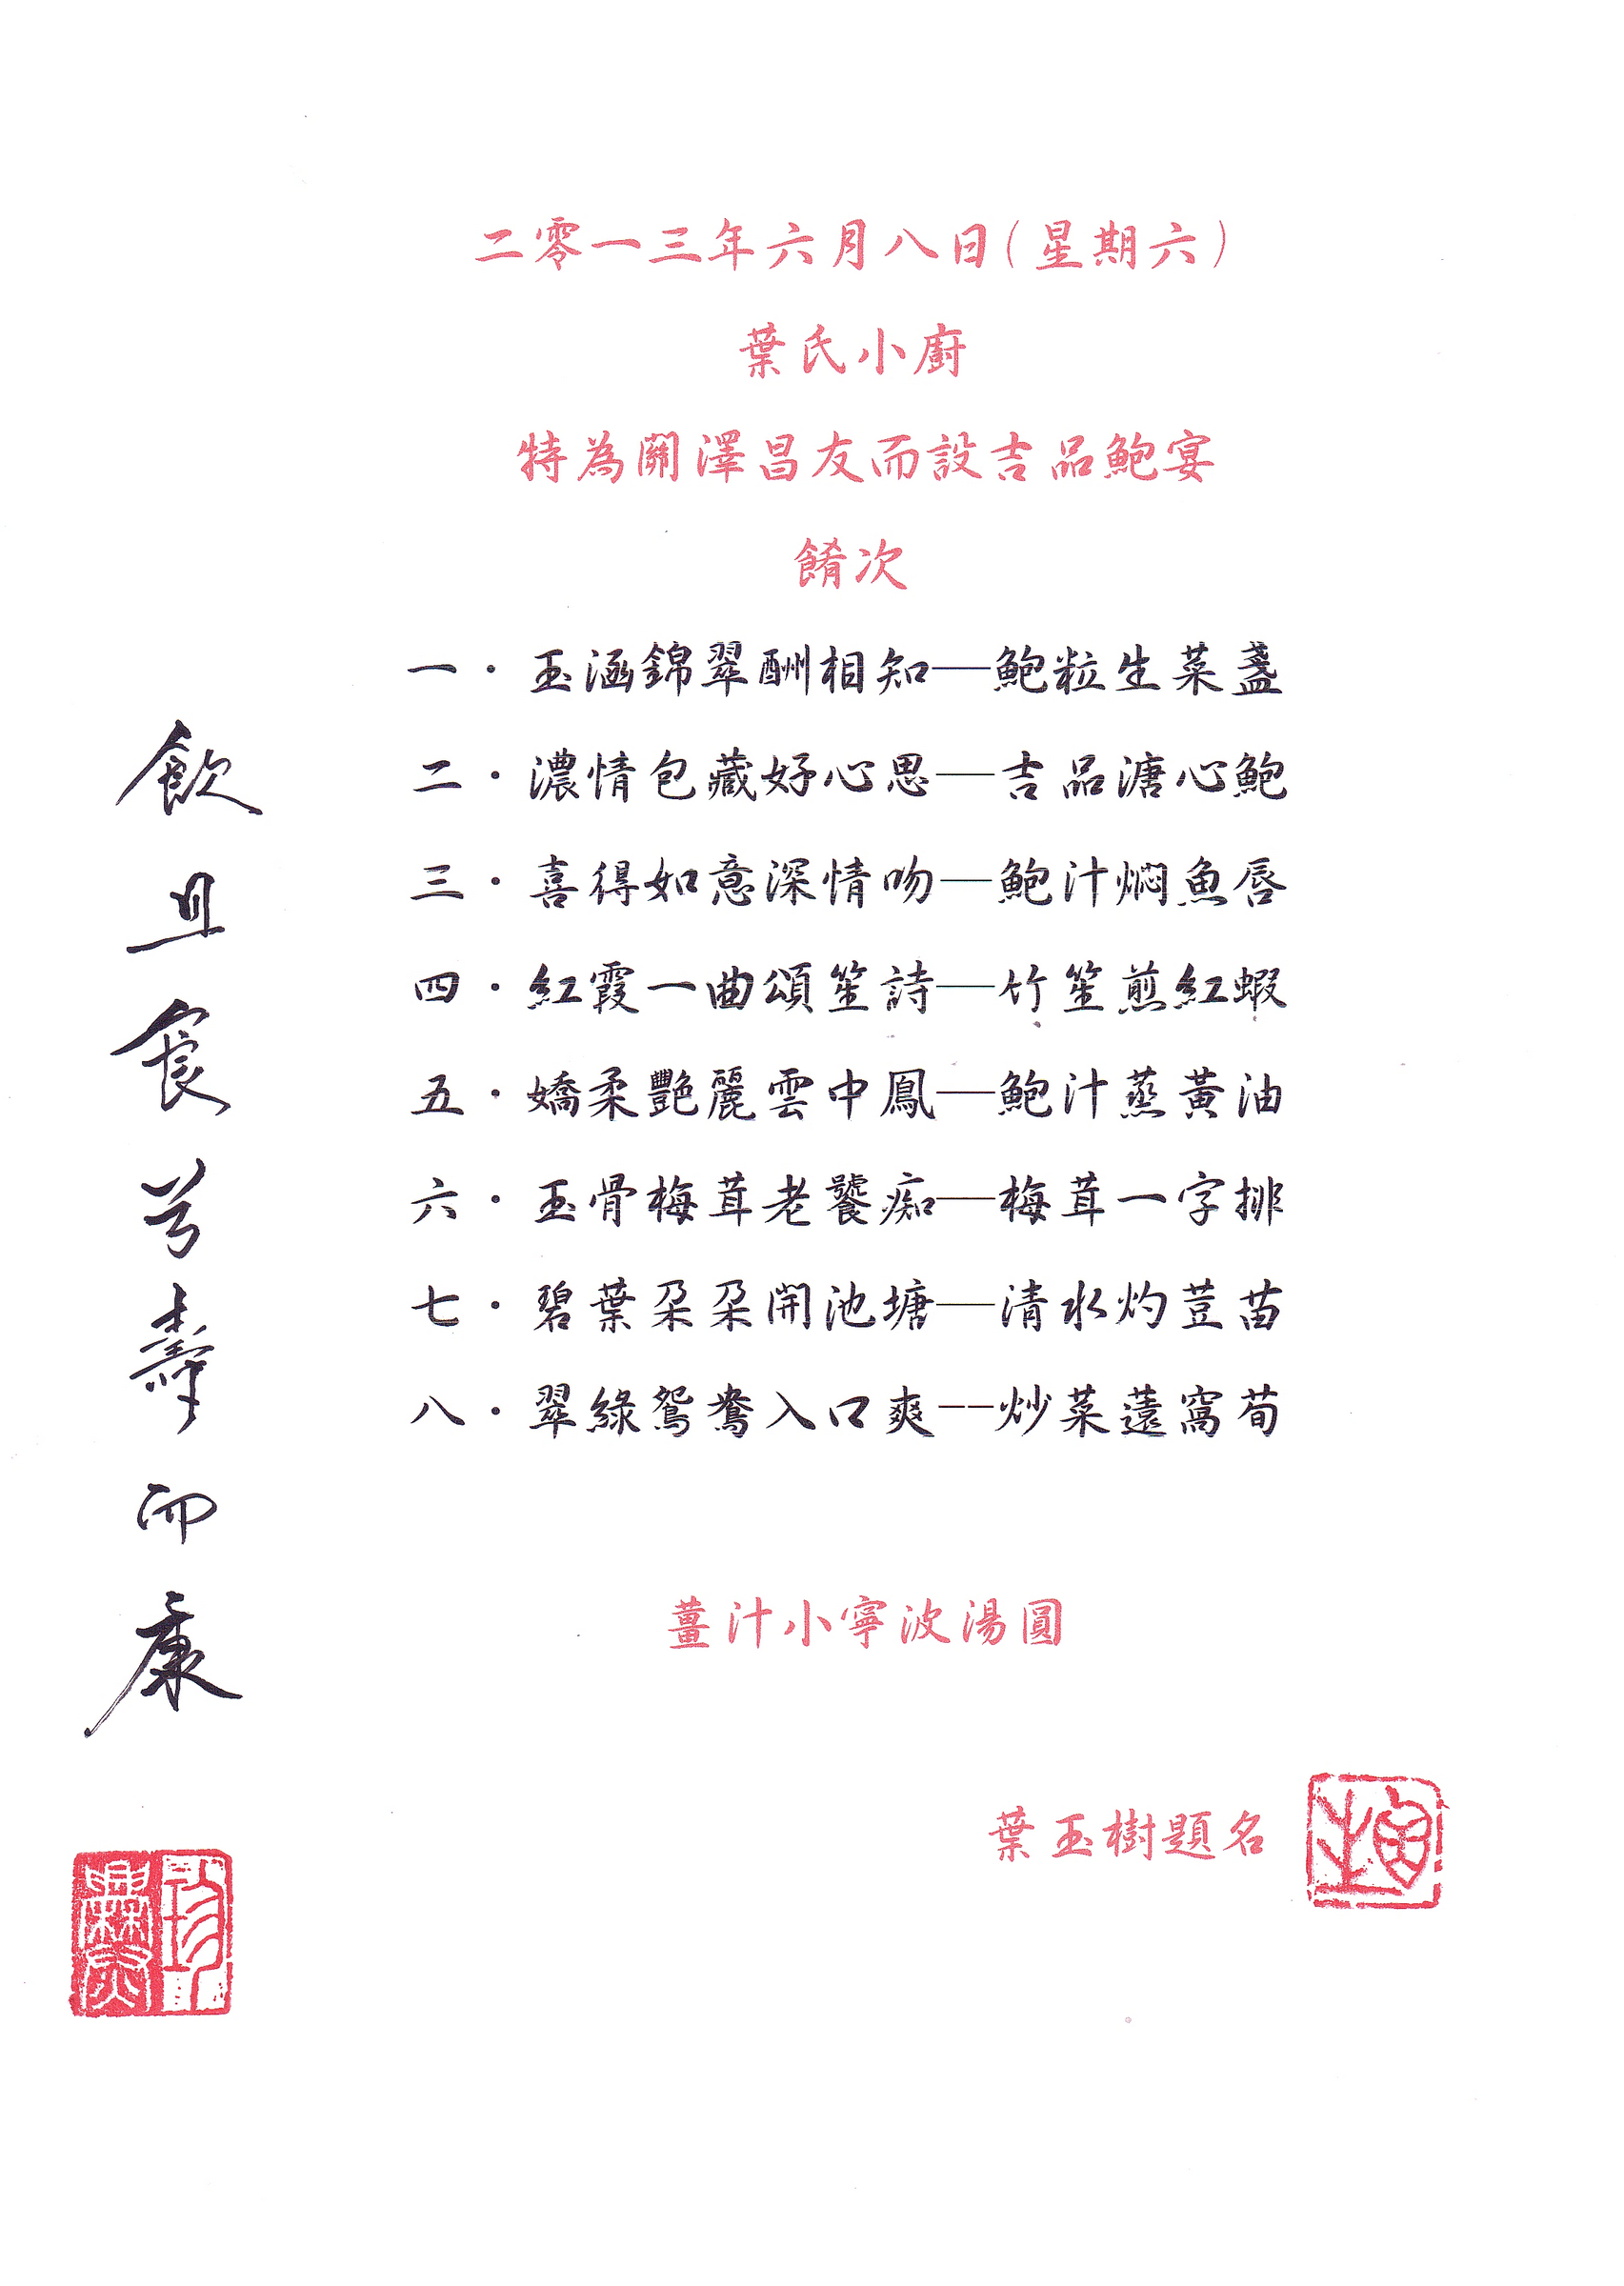 二零一三年六月八日(星期六)
葉氏小廚
特為關澤昌友而設吉品鮑宴
餚次
一·玉涵錦翠酬相知—鮑粒生菜盞
二·濃情包藏好心思—吉品溏心鮑
三·喜得如意深情吻—鮑汁燜魚唇
四·紅霞一曲頌笙詩—竹笙煎紅蝦
五·嬌柔艷麗雲中鳳—鮑汁蒸黃油
六·玉骨梅茸老饕痴—梅茸一字排
七·碧葉朵朵開池塘—清水灼荳苗
八·翠綠鴛鴦入口爽--炒菜薳窩荀
薑汁小寧波湯圓
葉玉樹題名
飲且食兮壽而康